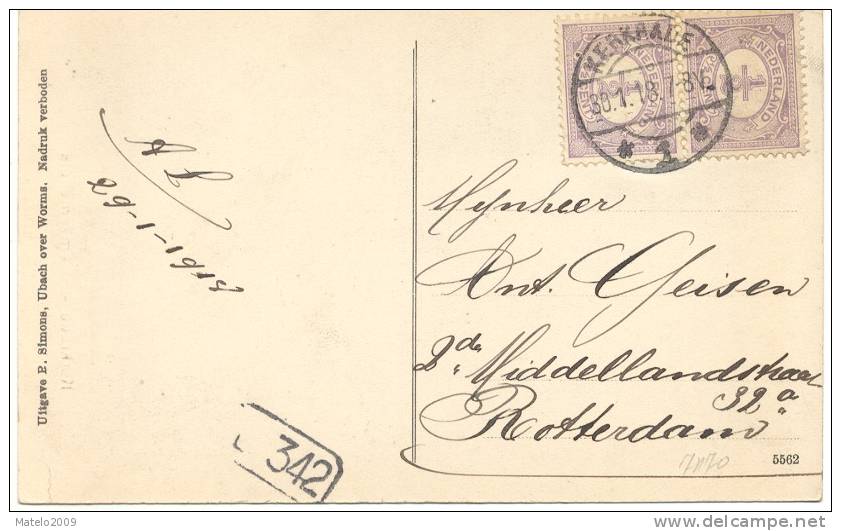 Uitgave E. Simons, Ubach over Worms. Nadruk verboden
A L
29-1-1918
KERKRADE
30.1.18.7-8V.
* 1 *
NEDERLAND
NEDERLAND
342
Mynheer
Ant. Geisen
2de Middellandstraat
32a
Rotterdam
5562
Matelo2009
www.delcampe.net